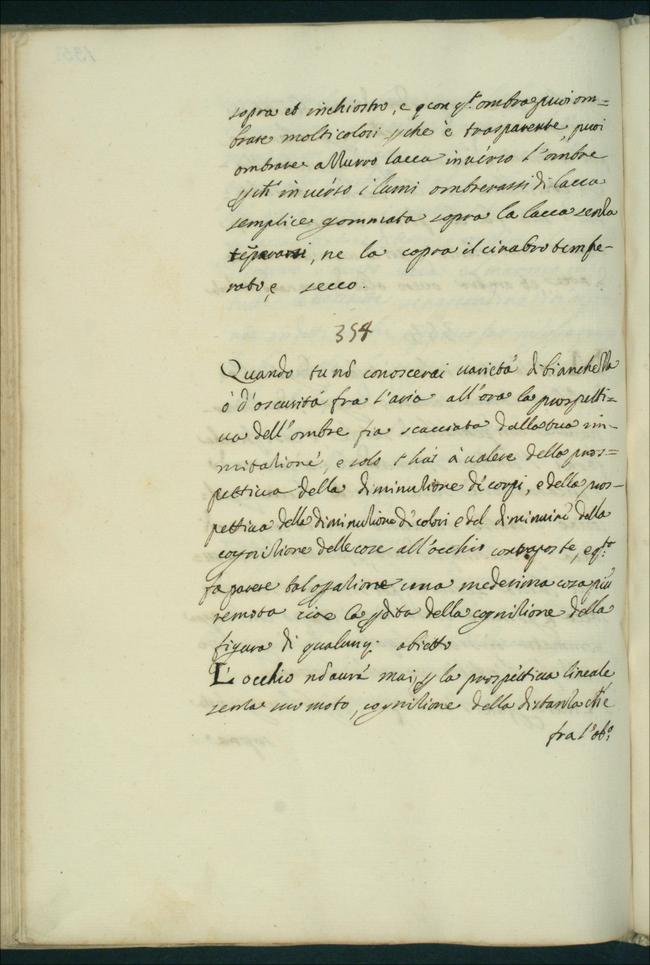 sopra et inchiostro, e q con qt. ombra puoi om=
brare molti colori p che è trasparente, puoi
ombrare azzurro lacca inuerso l'ombre
p ch inuerso i lumi ombrerassi di lacca
semplice gommata sopra la lacca senza
, ne la copra il cinabro tempe-
rato, e secco.
354
Quando tu nō conoscerai varietá di bianchezza
ó d'oscuritá fra l'aria all'ora la prospetti=
ua dell'ombre fia scacciata dalla tua im-
mitatione, e solo t'hai á valere della pros=
pettiua della diminutione de' corpi, e della pros-
pettiua della diminutione de' colori e del diminuire della
cognitione delle cose all'occhio contraposte, e qto
fa parere una medesima cosa più
remota cioe la pdita della cognitione della
figura di qualunq. obietto
L'occhio nō aurà mai, p la prospettiua lineale,
senza suo moto, cognitione della distanza ch'è
fra l'obo